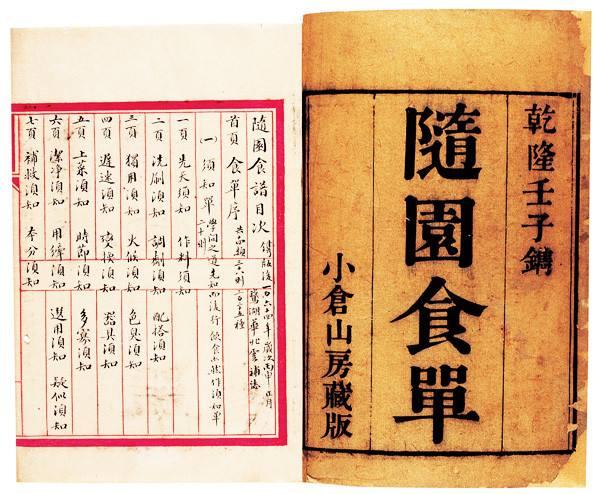 乾隆壬子鐫
隨園食單
小倉山房藏版
隨園食譜目次
歲次丙申正月
首頁 食單序
(一) 須知單 學問之道先知而後行飲食亦然作須知單
二十則
一頁 先天須知 作料須知
二頁 洗刷須知 調劑須知 配搭須知
三頁 獨用須知 火候須知 色臭須知
四頁 遲速須知 變換須知 器具須知
五頁 上菜須知 時即須知 多寡須知
六頁 潔净須知 用縴須知 選用須知 疑似須知
七頁 補救須知 本分須知